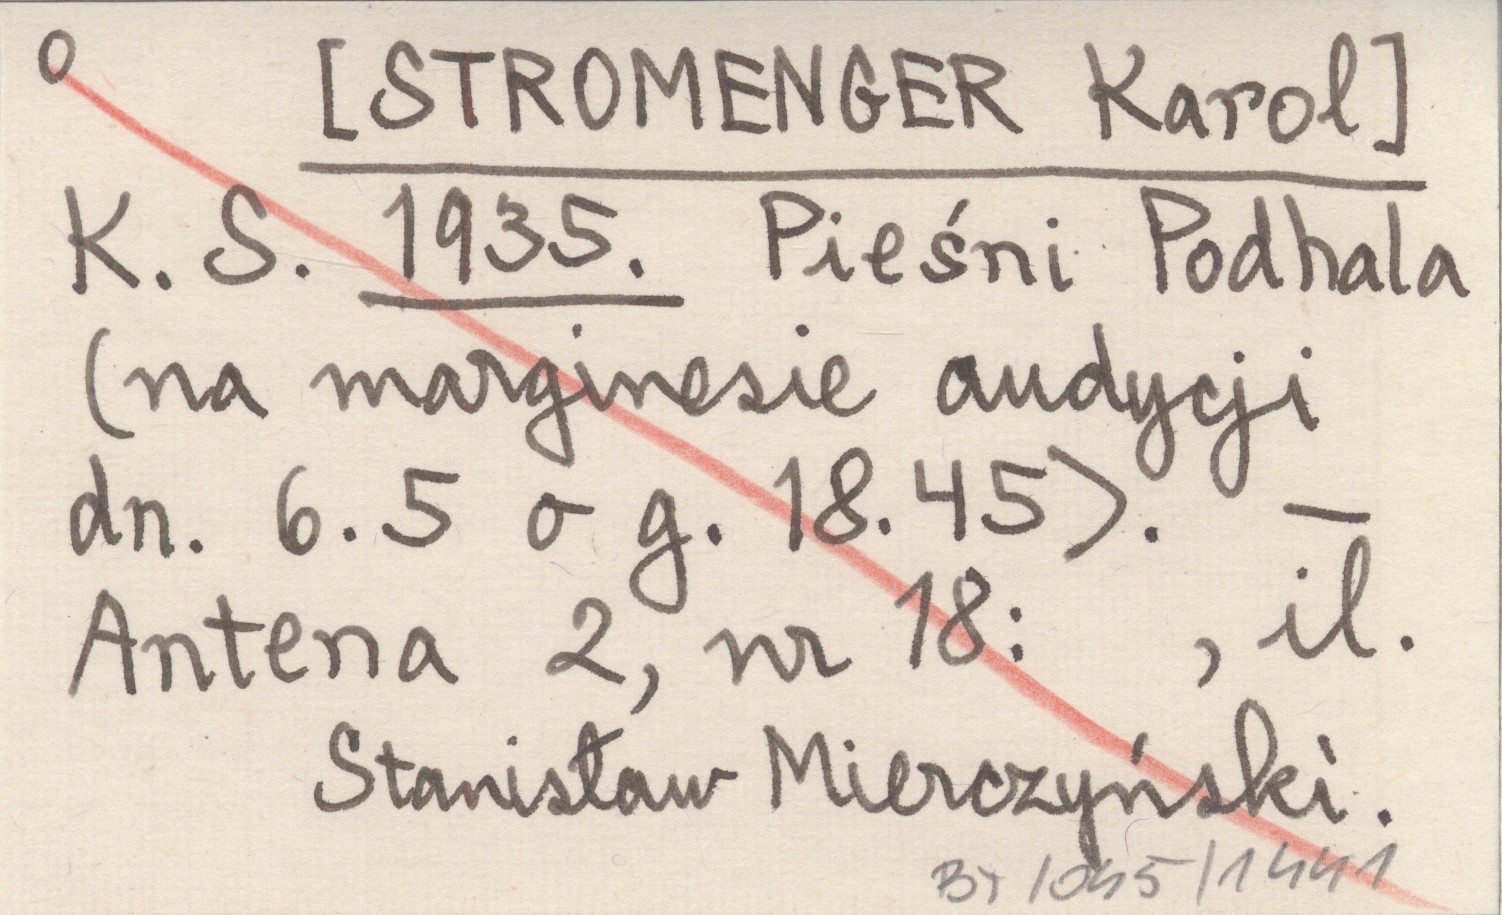 o [STROMENGER Karol]
K. S. 1935. Pieśni Podhala
(na marginesie audycji
dn. 6.5 o g. 18.45). —
Antena 2, nr 18: , il.
Stanisław Mierczyński.
/1441